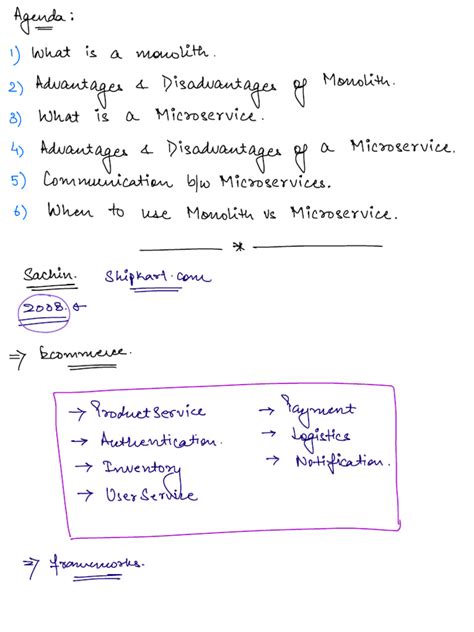 Agenda:
1) What is a monolith.
2) Advantages & Disadvantages of Monolith.
3) What is a Microservice.
4) Advantages & Disadvantages of a Microservice.
5) Communication b/w Microservices.
6) When to use Monolith vs Microservice.
Sachin. Shipkart.com
2008.
⇒ Ecommerce.
→ ProductService → Payment
→ Authentication. → Logistics
→ Inventory → Notification.
→ UserService
⇒ frameworks.